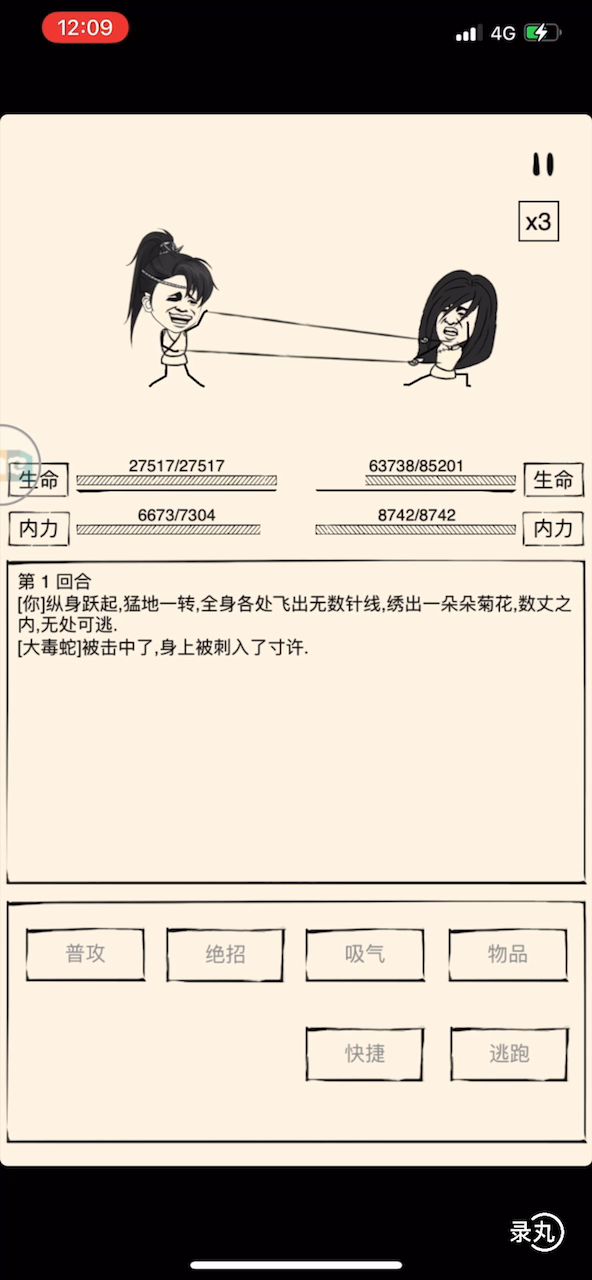 12:09
4G
x3
27517/27517
63738/85201
生命
生命
6673/7304
8742/8742
内力
内力
第 1 回合
[你]纵身跃起,猛地一转,全身各处飞出无数针线,绣出一朵朵菊花,数丈之
内,无处可逃.
[大毒蛇]被击中了,身上被刺入了寸许.
普攻
绝招
吸气
物品
快捷
逃跑
录丸